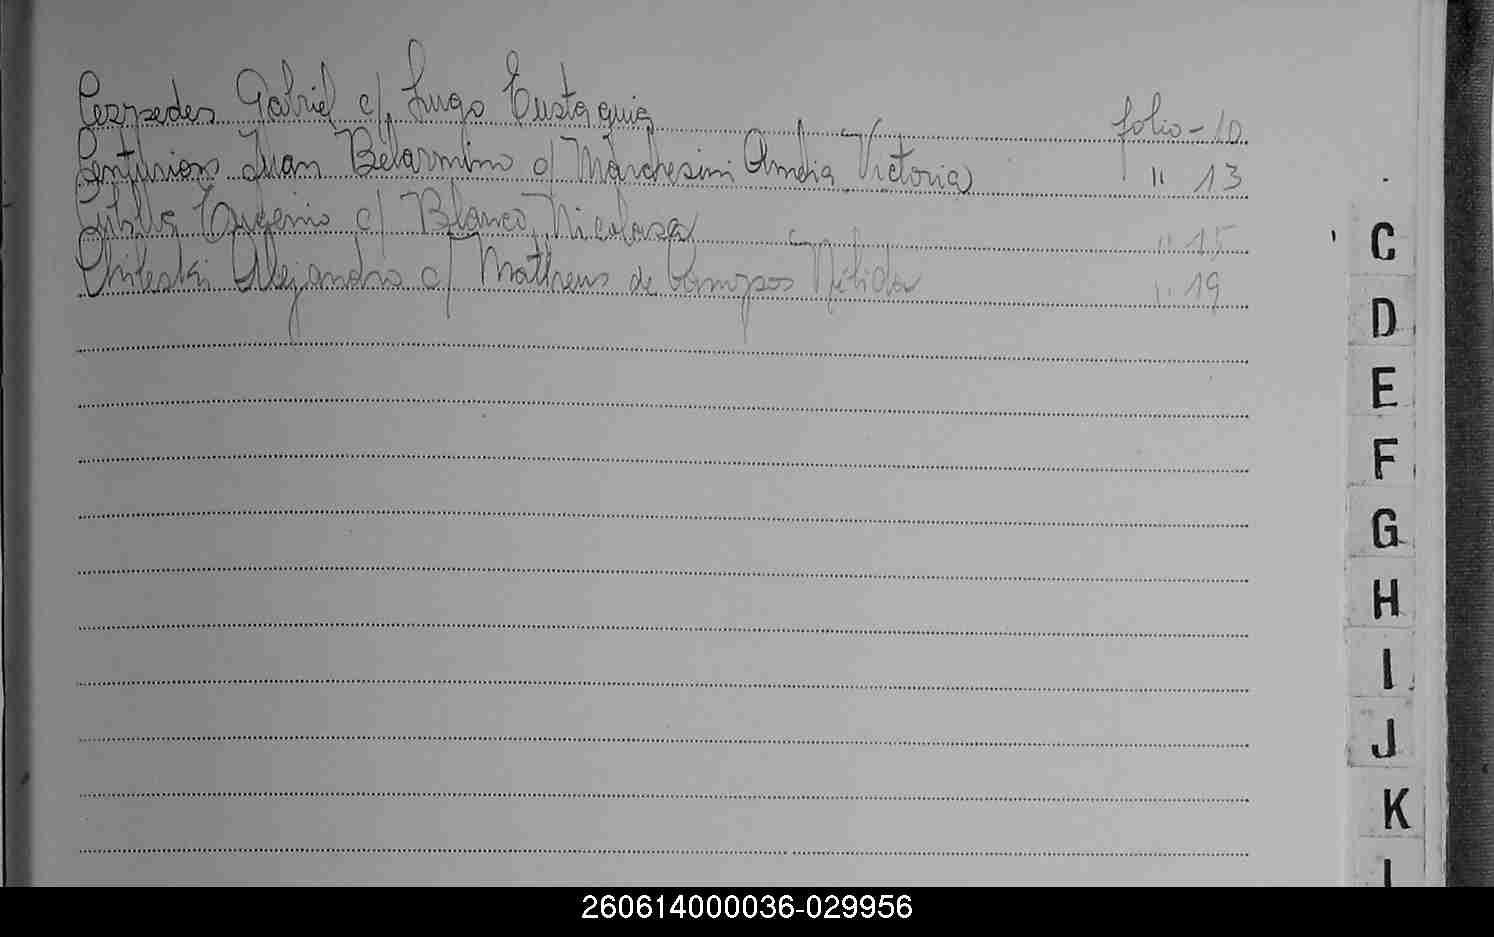 Cespedes Gabriel c/. Lugo Eustaquia folio - 10
Centurion Juan Belarmino c/ Marchesini Amelia Victoria " 13
Eugenio c/ Blanco Nicolasa " 15
Chileski Alejandro c/ Matheus de Campos Nélida " 19
C
D
E
F
G
H
I
J
K
260614000036-029956